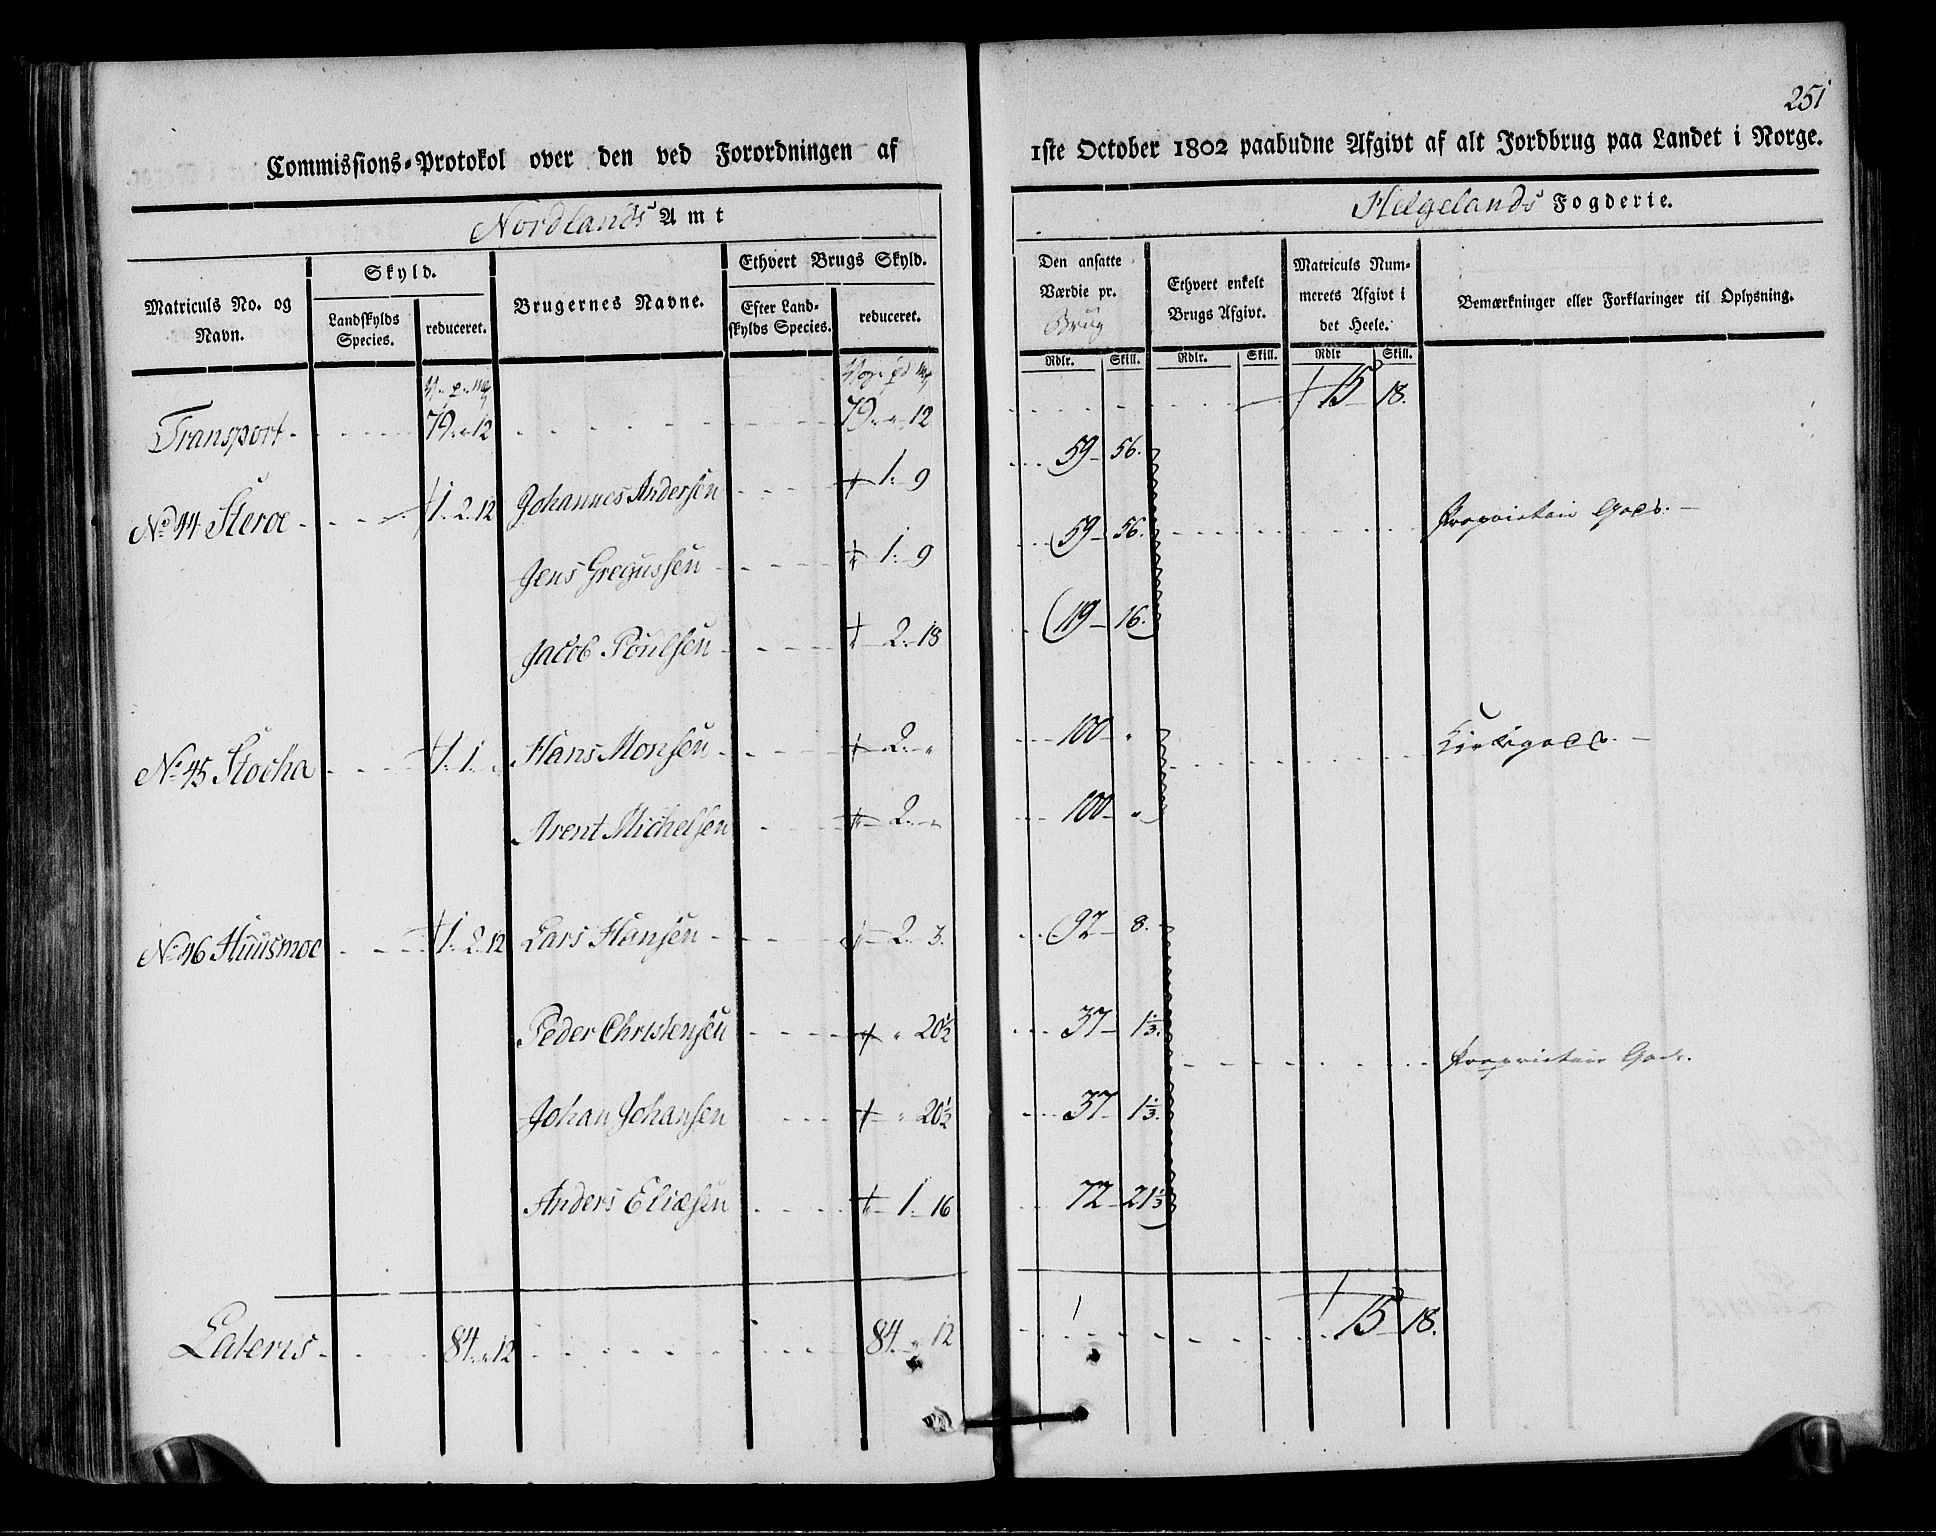 251
Commissions-Protokol over den ved Forordningen af 1ste October 1802 paabudne Afgivt af alt Jordbrug paa Landet i Norge.
Nordlands Amt Helgelands Fogderie.
Matriculs No. og Navn. Skyld. Landskylds Species. reduceret. Brugernes Navne. Ethvert Brugs Skyld. Efter Landskylds Species. reduceret. Den ansatte Værdie pr. Brug Rdlr. Skill. Ethvert enkelt Brugs Afgivt. Rdlr. Skill. Matriculs Nummerets Afgivt i det Heele. Rdlr Skill. Bemærkninger eller Forklaringer til Oplysning.
Transport 79 „ 12 79 „ 12 15 18.
Johannes Andersen 1. 9 59 56.
No 44 Steroe 1. 2. 12 Proprietair Gods.
Jens Gregussen 1. 9 59 56.
Jacob Poulsen 2. 18 119 16.
No 45 Stocka 1. 1. „ Hans Monsen 2. „ 100 „ Kirkegods
Arent Michelsen 2. „ 100 „
No 46 Huusmoe 1. 2. 12 Lars Hansen 2. 3. 92 8.
Peder Christensen „ 20½ 37 1⅓.
Proprietair Gods.
Johan Johansen „ 20½ 37 1⅓.
Anders Eliæsen 1. 16 72 21⅓
Lateris 84 „ 12 84 „ 12 15 18.